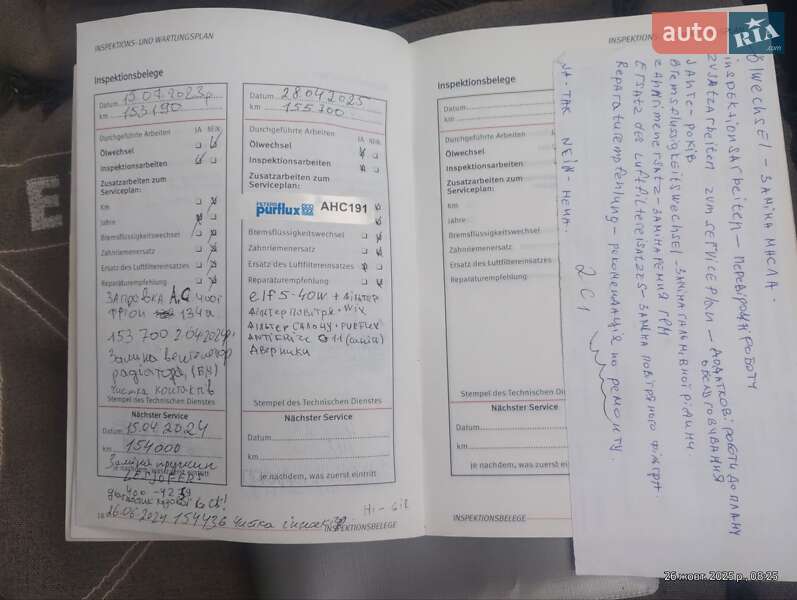 INSPEKTIONS- UND WARTUNGSPLAN
Inspektionsbelege
Datum 15.07.2023р
km 153190
Durchgeführte Arbeiten JA NEIN
Ölwechsel
Inspektionsarbeiten
Zusatzarbeiten zum
Serviceplan:
Km
Jahre
Bremsflüssigkeitswechsel
Zahnriemenersatz
Ersatz des Luftfiltereinsatzes
Reparaturempfehlung
Заправка A.C 400г
Фріон 134a.
153700 2.04.2024р.
Заміна вентилятор
радіатора (БН)
Чистка контактів
Stempel des Technischen Dienstes
Nächster Service
Datum 15.04.2024
km 154000
Заміна пружин
je nachdem, was zuerst eintritt
LESJOFORS
26.06.2024 154436 чистка
Datum 28.04.2025
km 155700
Durchgeführte Arbeiten JA NEIN
Ölwechsel
Inspektionsarbeiten
Zusatzarbeiten zum
Serviceplan:
purflux AHC191
Bremsflüssigkeitswechsel
Zahnriemenersatz
Ersatz des Luftfiltereinsatzes
Reparaturempfehlung
elf 5-40W + фільтер
Фільтер повітря - WIX
Фільтер салону - PURFLUX
ANTIFRIZE G11 (синій)
Дверники
Stempel des Technischen Dienstes
Nächster Service
Datum
km
je nachdem, was zuerst eintritt
Hi-Gir
INSPEKTIONSBELEGE
INSPEKTIONS
Inspektionsbelege
Datum
km
Durchgeführte Arbeiten
Ölwechsel
Inspektionsarbeiten
Zusatzarbeiten zum
Serviceplan:
Km
Jahre
Bremsflüssigkeitswechsel
Zahnriemenersatz
Ersatz des Luftfiltereinsatzes
Reparaturempfehlung
Stempel des Technischen Di
Nächster Service
Datum
km
je nachdem, was zuerst ei
INSPEKTIONSBELEGE
Ölwechsel - заміна масла.
inspektionsarbeiten - перевірочні роботи
zusatzarbeiten zum serviceplan - додаткові роботи до плану
обслуговування
Jahre - років
Bremsflüssigkeitswechsel - заміна гальмівної рідини
zahnriemenersatz - заміна ремня ГРМ
Ersatz des Luftfiltereisatzes - заміна повітряного фільтра
Reparaturempfehlung - рекомендація по ремонту
JA - так NEIN - нема.
2С1
auto RIA.com
26 жовт. 2025 р., 08:25